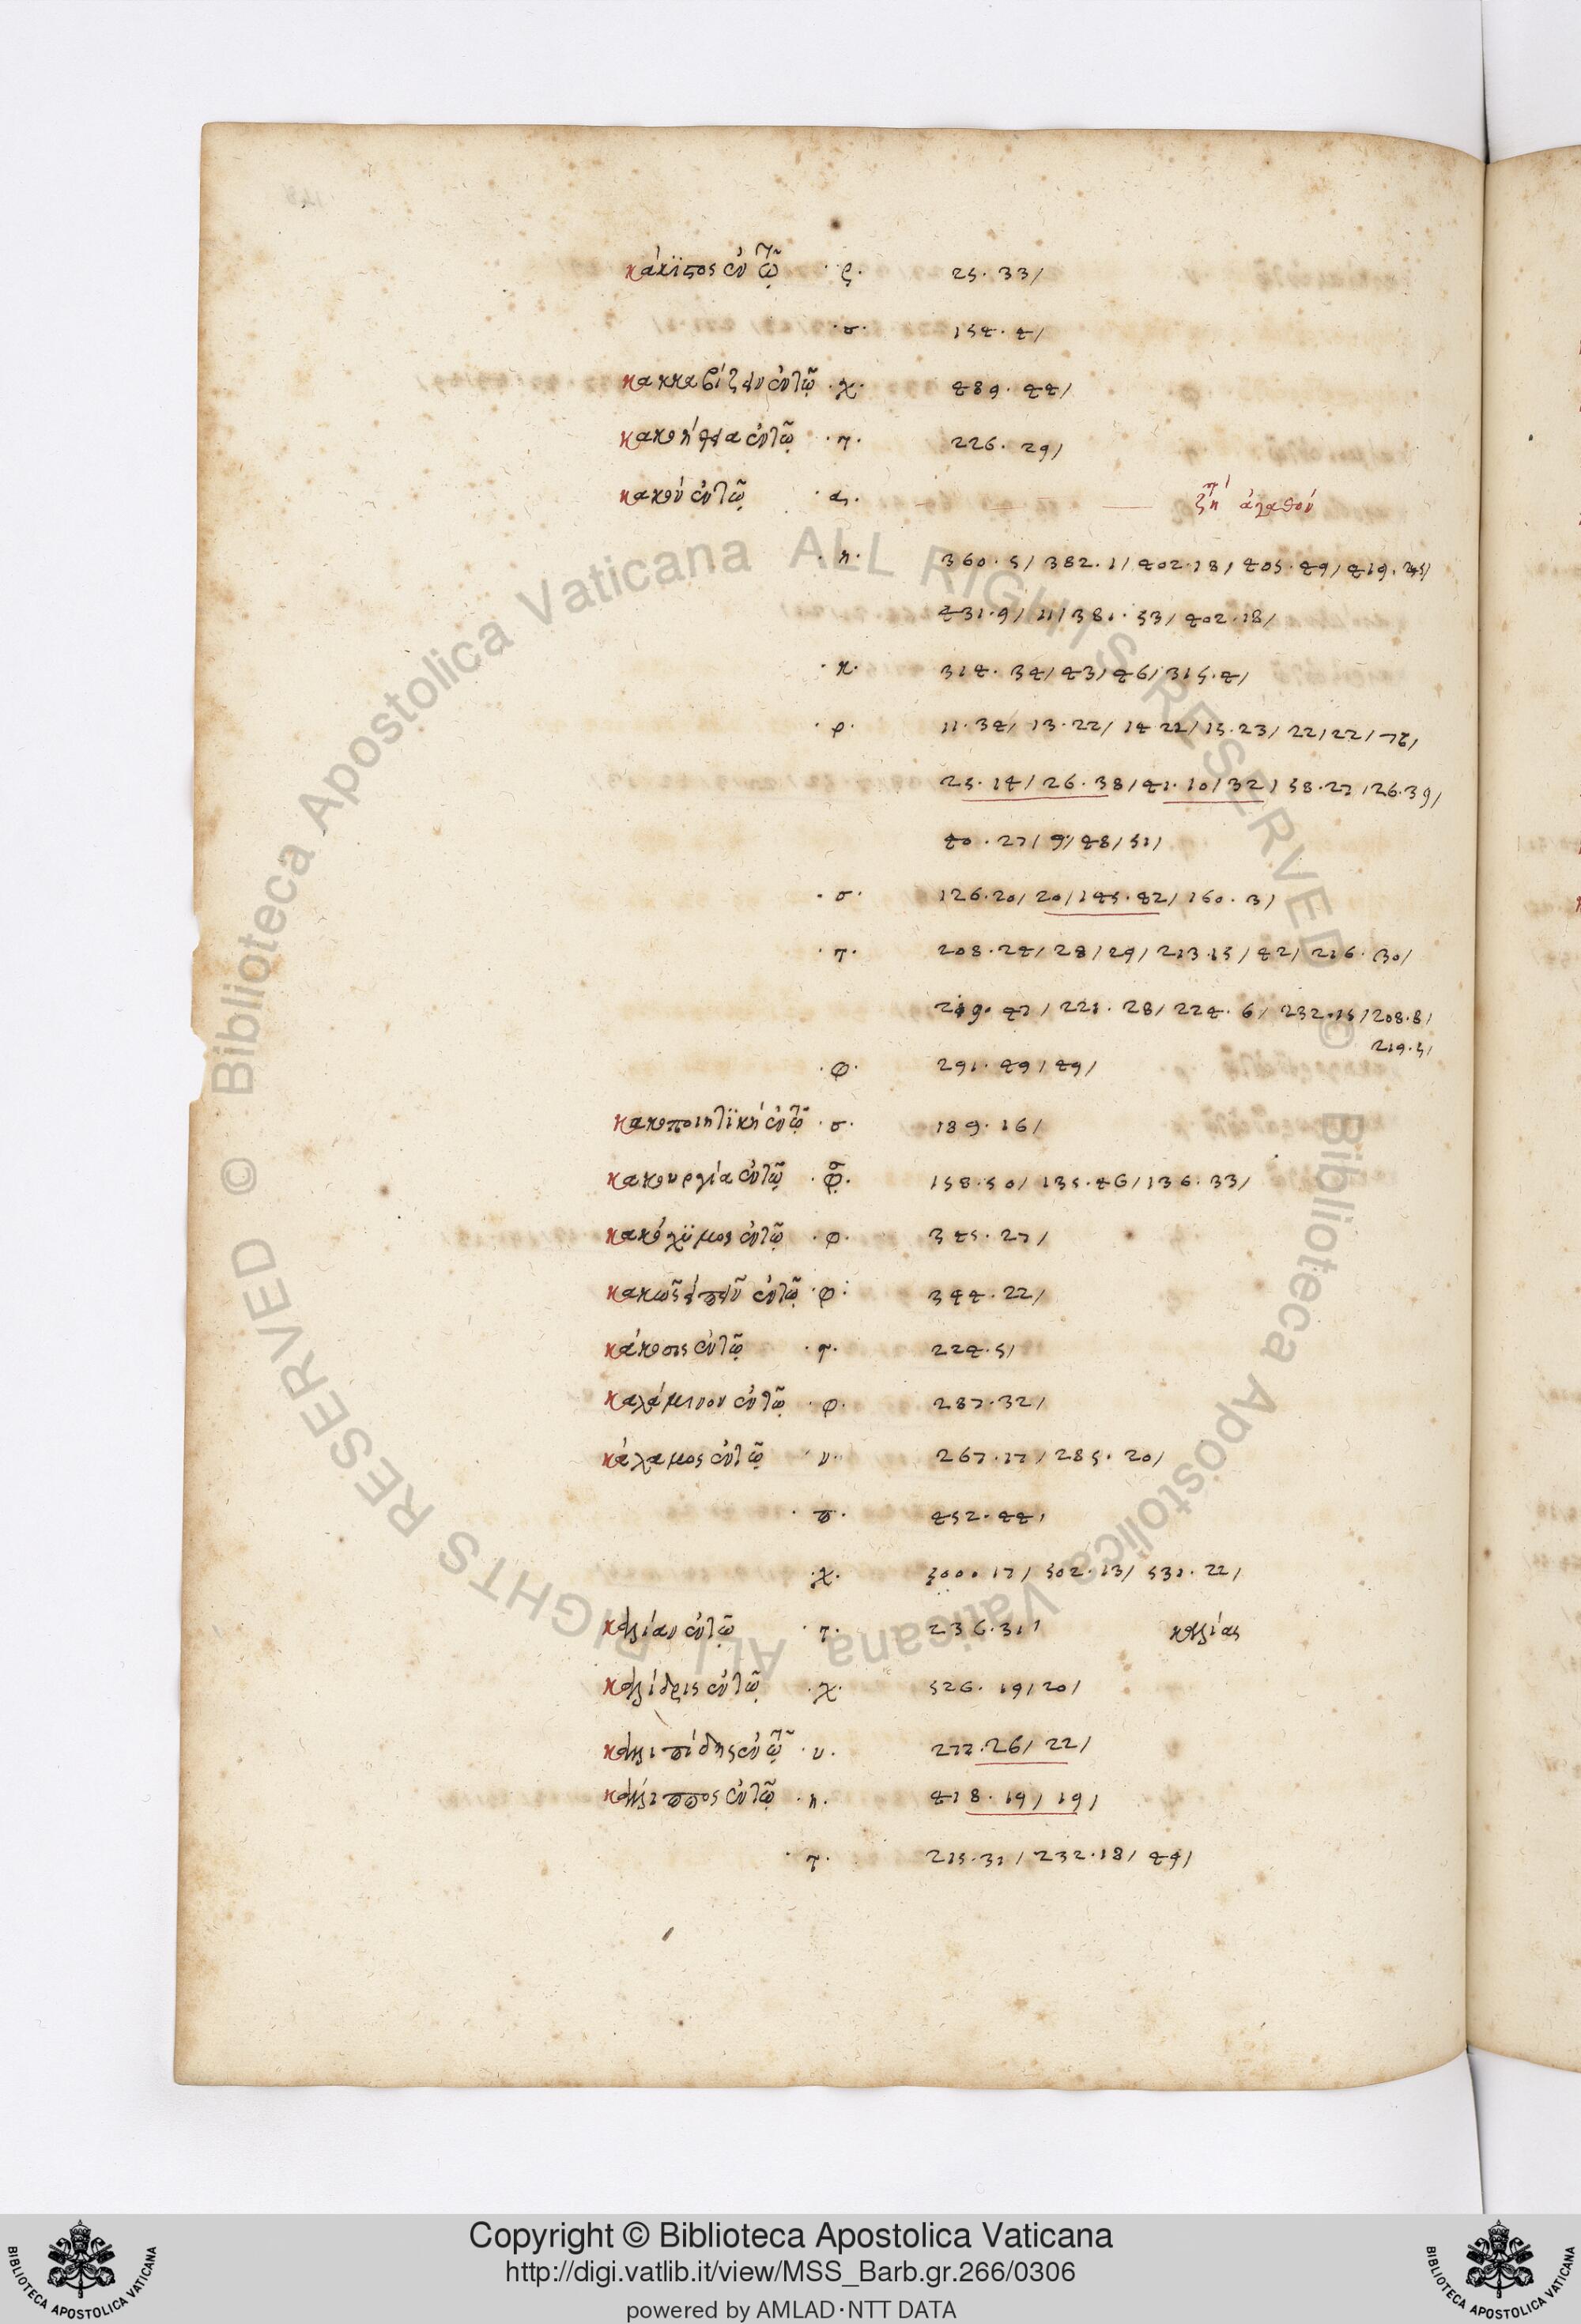 κάκϊστος ἐν τῷ · ρ · 25 · 33/
· σ · 154 · 4/
κακκαβίζειν ἐν τῷ · χ · 489 · 44/
κακοήθεια ἐν τῷ · τ · 226 · 29/
κακόν ἐν τῷ · α · ζήτει ἀγαθόν
· η · 360 · 5/ 382 · 1/ 402 · 18/ 405 · 49/ 419 ·
431 · 9/ 11/ 381 · 53/ 402 · 18/
· κ · 314 · 34/ 43/ 46/ 315 · 4/
· ρ · 11 · 34/ 13 · 22/ 14 22/ 15 · 23/ 22/ 22/
25 · 14/ 26 · 38/ 41 · 10/ 32/ 58 · 27/ 26 · 39/
40 · 27/ 9/ 48/ 51/
· σ · 126 · 20/ 20/ 145 · 42/ 160 · 3/
· τ · 208 · 24/ 28/ 29/ 213 · 15/ 42/ 216 · 30/
219 · 47/ 221 · 28/ 224 · 6/ 232 · 15/ 208 · 8/
219 · 5/
· φ · 291 · 49/ 49/
κακοποιητϊκή ἐν τῷ · σ · 189 · 16/
κακουργία ἐν τῷ · 158 · 50/ 135 · 46/ 136 · 33/
κακόχϋμος ἐν τῷ · φ · 345 · 27/
κακῶς εἰπεῖν ἐν τῷ · φ · 344 · 22/
κάκοσις ἐν τῷ · τ · 224 · 5/
καλάμινον ἐν τῷ · φ · 287 · 32/
κάλαμος ἐν τῷ · υ · 267 · 17/ 285 · 20/
· π · 452 · 44/
· χ · 500 · 17/ 502 · 13/ 531 · 22/
καλίαν ἐν τῷ · τ · 236 · 31/ καλίας
καλίδρις ἐν τῷ · χ · 526 · 19/ 20/
καλλιπίδης ἐν τῷ · υ · 272 · 26/ 22/
κάλλιππος ἐν τῷ · η · 418 · 19/ 19/
· τ · 215 · 31/ 232 · 18/ 49/
Copyright © Biblioteca Apostolica Vaticana
http://digi.vatlib.it/view/MSS_Barb.gr.266/0306
powered by AMLAD·NTT DATA
BIBLIOTECA APOSTOLICA VATICANA
BIBLIOTECA APOSTOLICA VATICANA
© Biblioteca Apostolica Vaticana ALL RIGHTS RESERVED
© Biblioteca Apostolica Vaticana ALL RIGHTS RESERVED